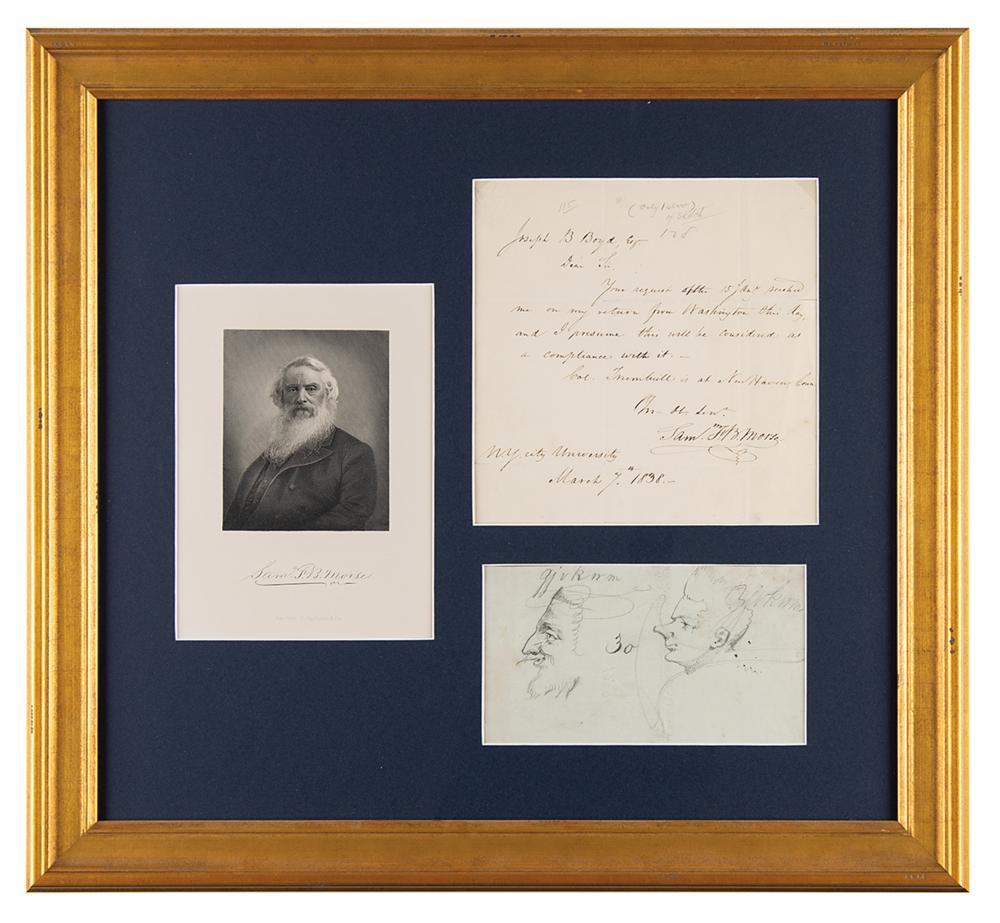 Samˡ F.B. Morse
115
(Only 1 side)
of Sketch
128
Joseph B Boyd, Esq
Dear Sir,
Your request of the 15 Janʸ reached
me on my return from Washington this day
and I presume this will be considered as
a compliance with it. –
Col. Trumbull is at New Haven, Conn
Yr. Ob. Servᵗ.
Samˡ. F.B. Morse
N.Y. city University
March 7.ᵗʰ 1838. –
gjvkwm
30